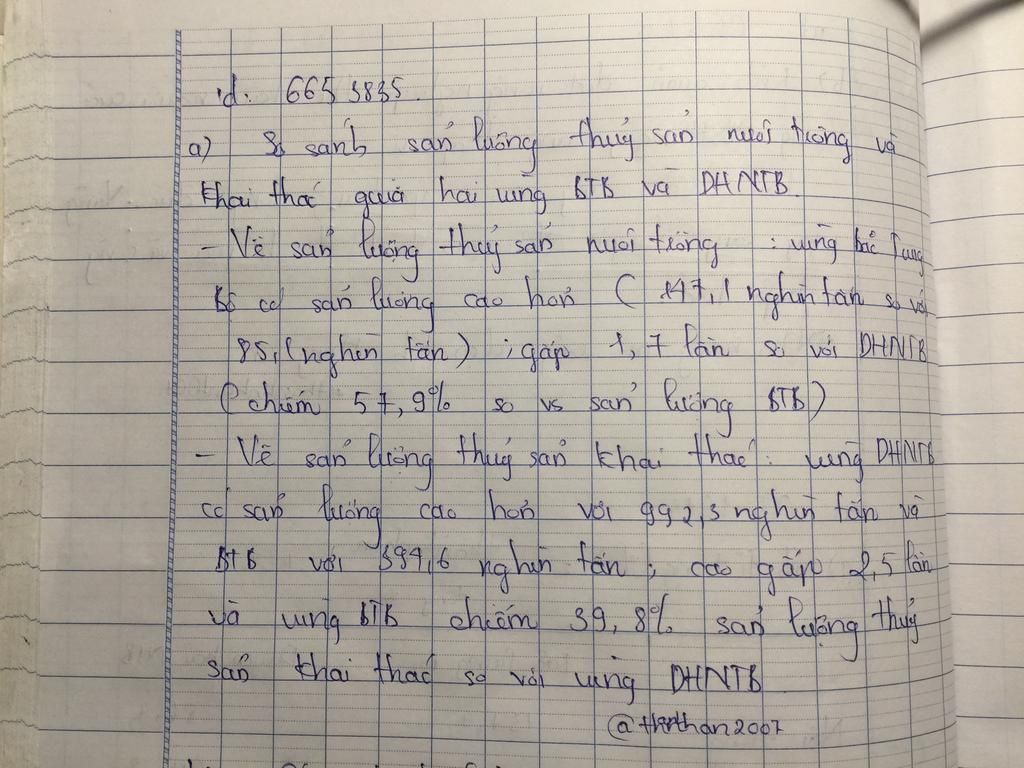 id: 6653835.
a) So sánh sản lượng thuỷ sản nuôi trồng và
khai thác của hai vùng BTB và DHNTB.
- Về sản lượng thuỷ sản nuôi trồng : vùng Bắc Trung
Bộ có sản lượng cao hơn ( 147,1 nghìn tấn so với
85,1 nghìn tấn) ; gấp 1,7 lần so với DHNTB
(chiếm 57,9% so vs sản lượng BTB)
- Về sản lượng thuỷ sản khai thác : vùng DHNTB
có sản lượng cao hơn với 992,3 nghìn tấn và
BTB với 394,6 nghìn tấn ; cao gấp 2,5 lần
và vùng BTB chiếm 39,8% sản lượng thuỷ
sản khai thác so với vùng DHNTB